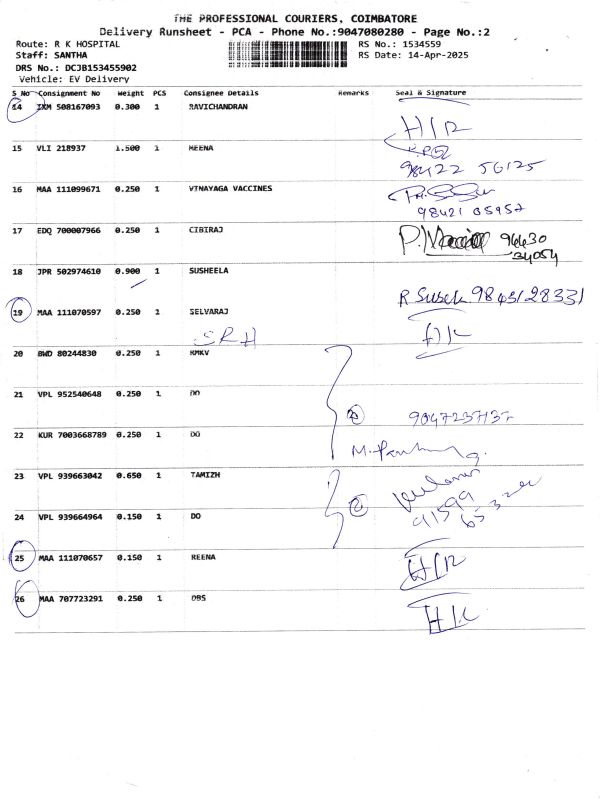 THE PROFESSIONAL COURIERS, COIMBATORE
Delivery Runsheet - PCA - Phone No.:9047080280 - Page No.:2
Route: R K HOSPITAL RS No.: 1534559
Staff: SANTHA RS Date: 14-Apr-2025
DRS No.: DCJB153455902
Vehicle: EV Delivery
S No Consignment No Weight PCS Consignee Details Remarks Seal & Signature
14 IXM 508167093 0.300 1 RAVICHANDRAN
H/R
15 VLI 218937 1.500 1 MEENA
98422 56125
16 MAA 111099671 0.250 1 VINAYAGA VACCINES
98421 05957
17 EDQ 700007966 0.250 1 CIBIRAJ
96430
34054
18 JPR 502974610 0.900 1 SUSHEELA
9843128331
19 MAA 111070597 0.250 1 SELVARAJ
SRH
20 BWD 80244830 0.250 1 RMKV
21 VPL 952540648 0.250 1 DO
9047237137
22 KUR 7003668789 0.250 1 DO
23 VPL 939663042 0.650 1 TAMIZH
91599
24 VPL 939664964 0.150 1 DO
25 MAA 111070657 0.150 1 REENA
H/R
26 MAA 707723291 0.250 1 DBS